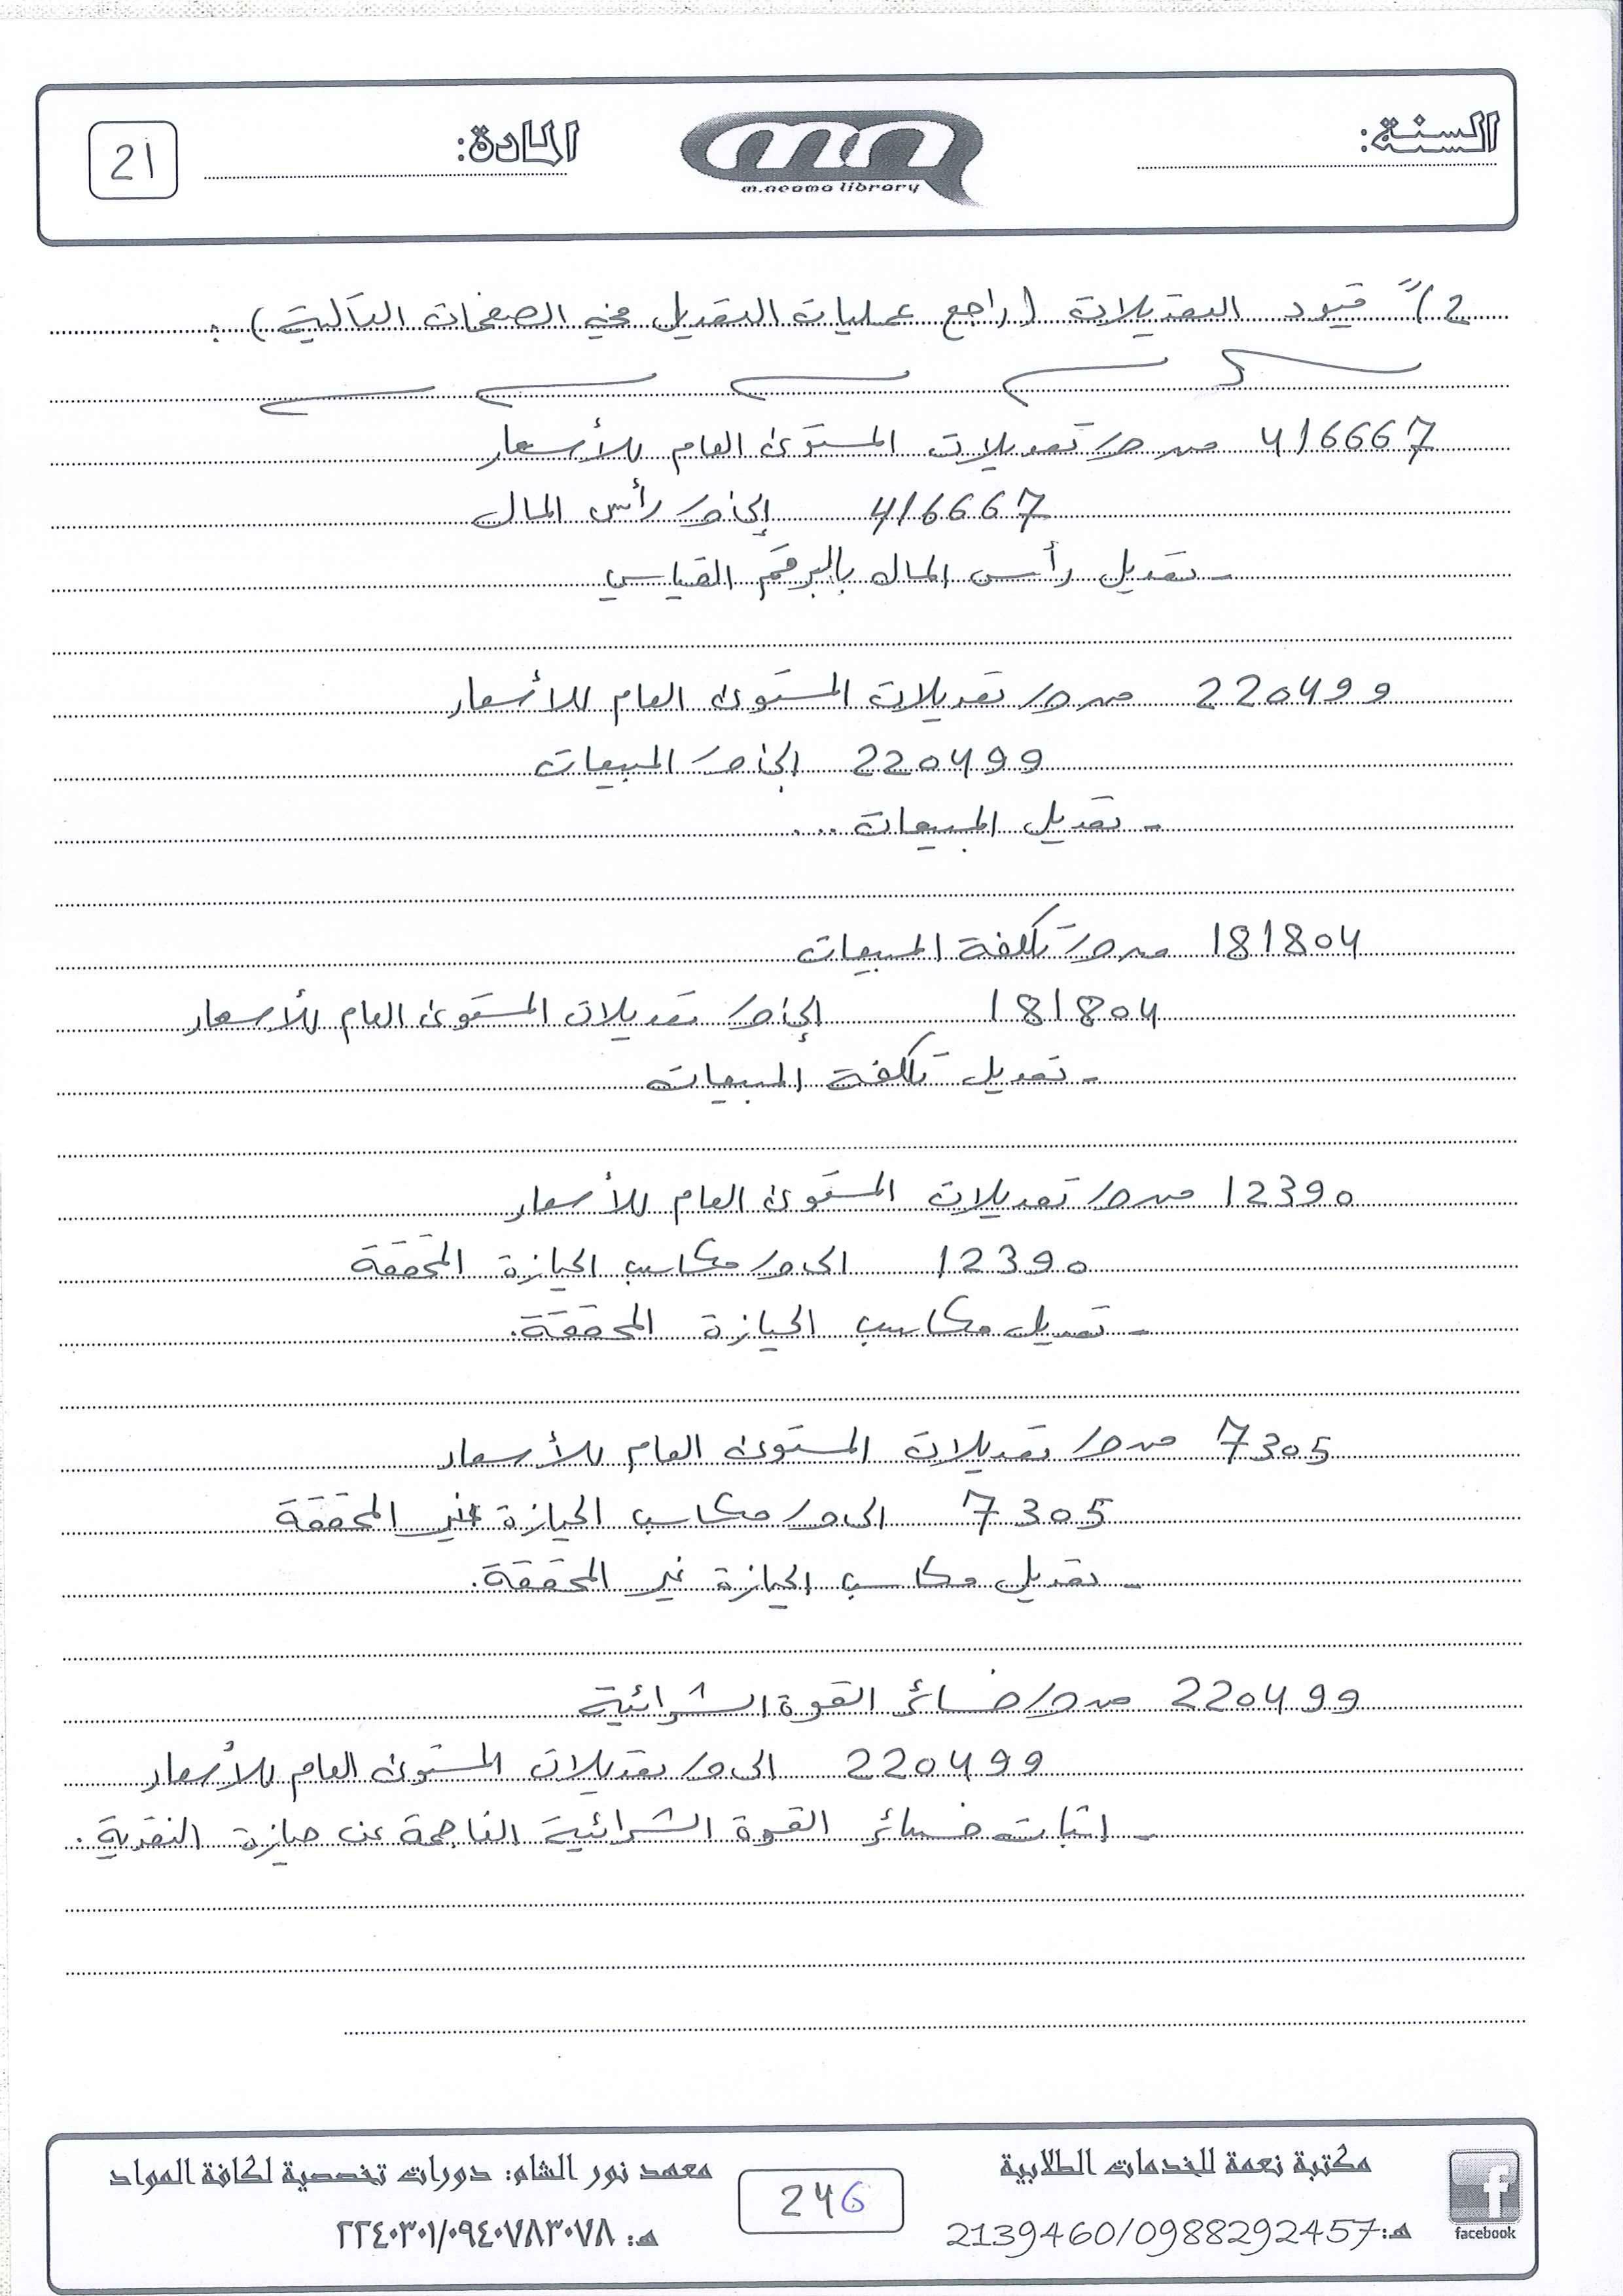 السنة:
m.neama library
المادة:
21
2) قيود التعديلات (راجع عمليات التعديل في الصفحات التالية):
416667 من ح/ تعديلات المستوى العام للأسعار
416667 إلى ح/ رأس المال
- تعديل رأس المال بالرقم القياسي
220499 من ح/ تعديلات المستوى العام للأسعار
220499 إلى ح/ المبيعات
- تعديل المبيعات ...
181804 من ح/ تكلفة المبيعات
181804 إلى ح/ تعديلات المستوى العام للأسعار
- تعديل تكلفة المبيعات
12390 من ح/ تعديلات المستوى العام للأسعار
12390 الى ح/ مكاسب الحيازة المحققة
- تعديل مكاسب الحيازة المحققة.
7305 من ح/ تعديلات المستوى العام للأسعار
7305 الى ح/ مكاسب الحيازة غير المحققة
- تعديل مكاسب الحيازة غير المحققة.
220499 من ح/ خسائر القوة الشرائية
220499 الى ح/ تعديلات المستوى العام للأسعار
- اثبات خسائر القوة الشرائية الناجمة عن حيازة النقدية.
مكتبة نعمة للخدمات الطلابية
هـ: 2139460/0988292457
facebook
246
معهد نور الشام: دورات تخصصية لكافة المواد
هـ: ٢٢٤٠٣٠١/٠٩٤٠٧٨٣٠٧٨